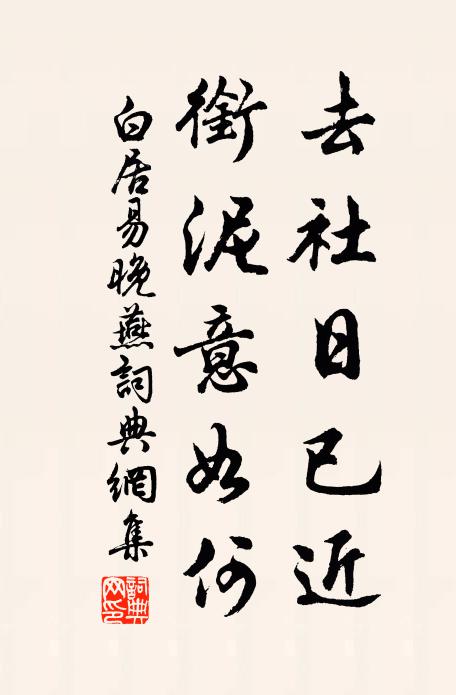 去社日已近
銜泥意如何
白居易晚燕詞典網集
詞典
網印